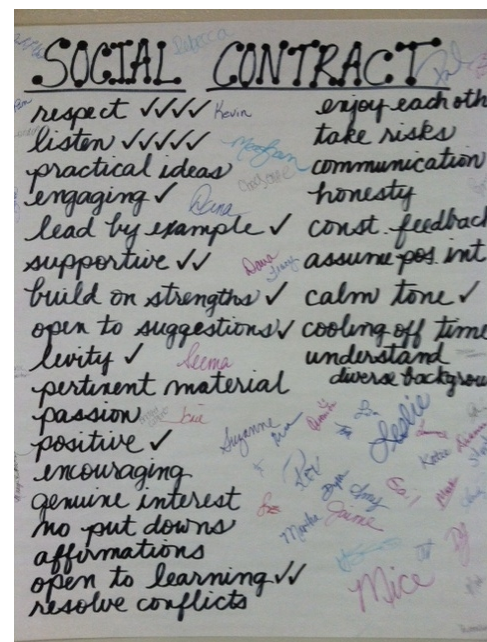 Rebecca
SOCIAL CONTRACT
respect ✓✓✓✓ Kevin
listen ✓✓✓✓✓
practical ideas
engaging ✓ Dana
lead by example ✓
supportive ✓✓
build on strengths ✓
open to suggestions ✓
levity ✓ Seema
pertinent material
passion
positive ✓
encouraging
genuine interest
no put downs
affirmations
open to learning ✓✓
resolve conflicts
enjoy each oth
take risks
communication
honesty
const. feedback
assume pos. int
calm tone ✓
cooling off time
understand
diverse backgrou
Suzanne
Leslie
Katie
Amy
Martha
Jaime
Mice